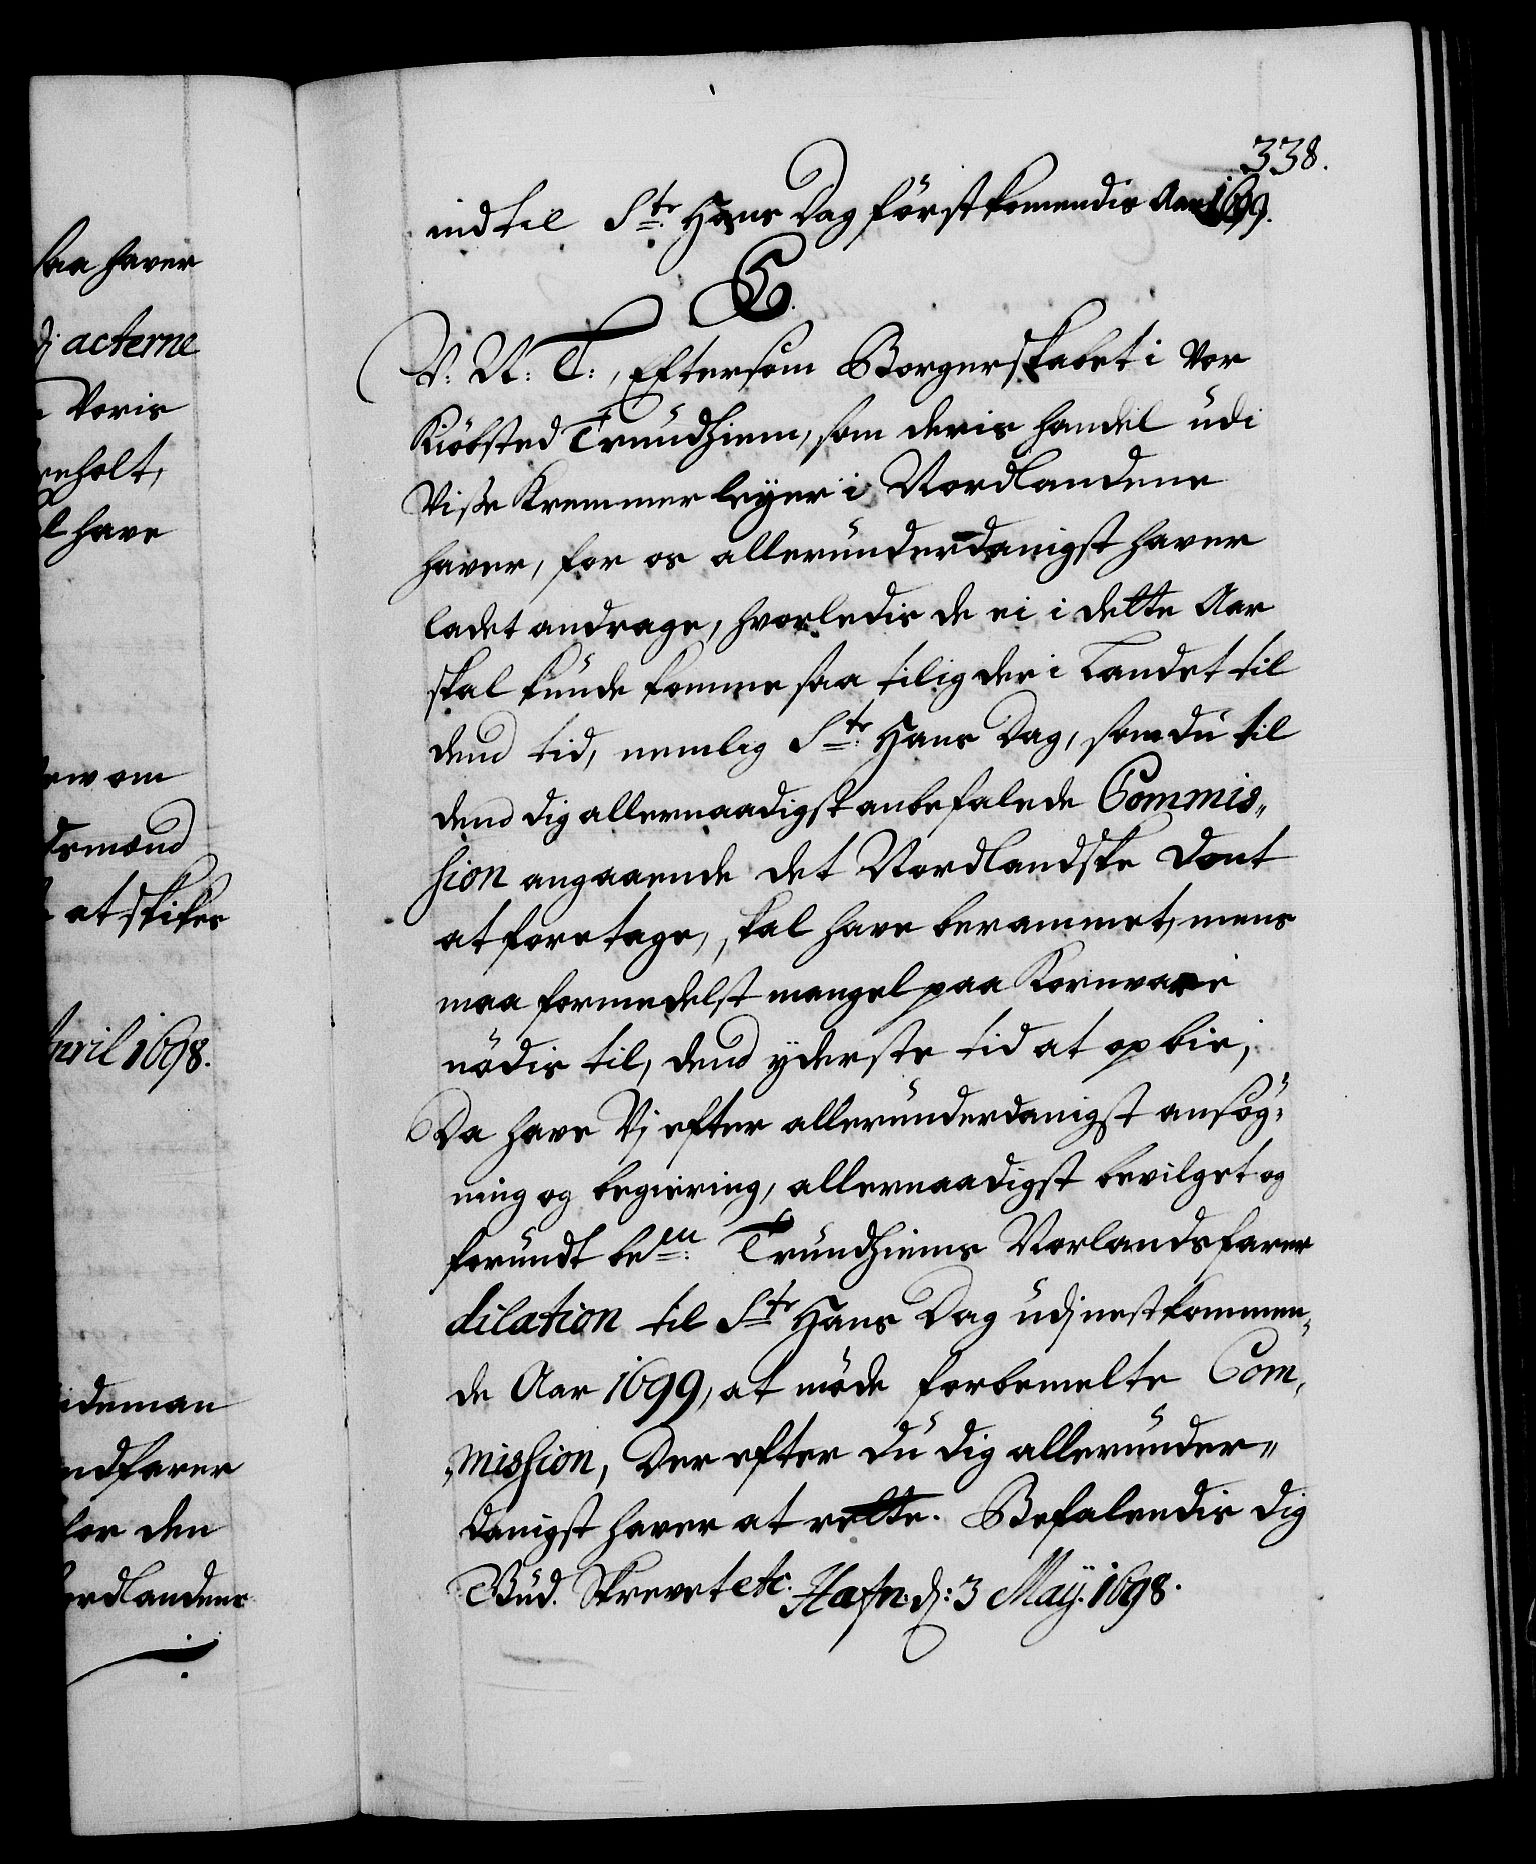 338.
indtil Ste Hans Dag förstkomendis Aar 1699.
C.
V: N: T:, Eftersom Borgerskabet i Vor
Kiöbsted Trundhiem, som deris handel udi
Visse Kremmerleyer i Nordlandene
haver, for os allerunderdanigst haver
ladet andrage, hvorledis de ei i dette Aar
skal kunde komme saa tilig der i Landet til
dend tid, nemlig Ste Hans Dag, som du til
dend dig allernaadigst anbefalede Commis„
sion angaaende det Nordlandske Dont
at foretage, skal have berammet, mens
maa formedelst mangel paa Kornvare
nödis til, dend yderste tid at opbie,
Da have Vj efter allerunderdanigst ansög„
ning og begiering, allernaadigst bevilget og
forundt bemte Trundhiems Norlandsfarer
dilation til Ste Hans Dag udj nestkommen„
de Aar 1699, at möde forbemelte Com„
„mission, Der efter du dig allerunder„
danigst haver at rette. Befalendis dig
Gud. Skrevet etc. Hafn: dj: 3 Maÿ. 1698.
saa haver
acterne
Voris
have
om
at skikes
April 1698.
for den